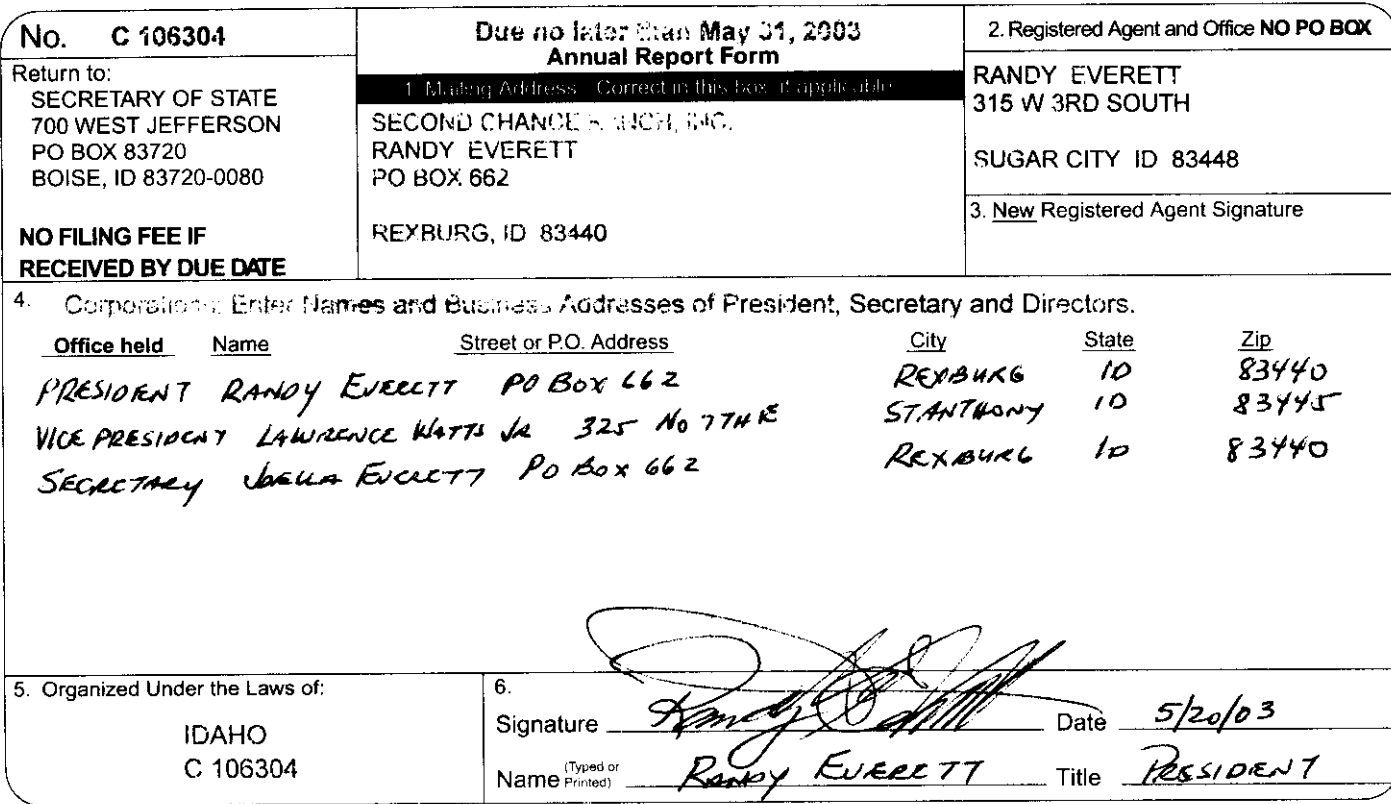 No. C 106304
Return to:
SECRETARY OF STATE
700 WEST JEFFERSON
PO BOX 83720
BOISE, ID 83720-0080
NO FILING FEE IF
RECEIVED BY DUE DATE
Due no later than May 31, 2003
Annual Report Form
1. Mailing Address. Correct in this box, if applicable
SECOND CHANCE RANCH, INC.
RANDY EVERETT
PO BOX 662
REXBURG, ID 83440
2. Registered Agent and Office NO PO BOX
RANDY EVERETT
315 W 3RD SOUTH
SUGAR CITY ID 83448
3. New Registered Agent Signature
4. Corporations: Enter Names and Business Addresses of President, Secretary and Directors.
Office held Name Street or P.O. Address City State Zip
PRESIDENT RANDY EVERETT PO BOX 662 REXBURG ID 83440
VICE PRESIDENT LAWRENCE WATTS JR 325 NO 7TH E ST ANTHONY ID 83445
SECRETARY JOELLA EVERETT PO BOX 662 REXBURG ID 83440
5. Organized Under the Laws of:
IDAHO
C 106304
6.
Signature Randy Everett Date 5/20/03
Name (Typed or Printed) RANDY EVERETT Title PRESIDENT